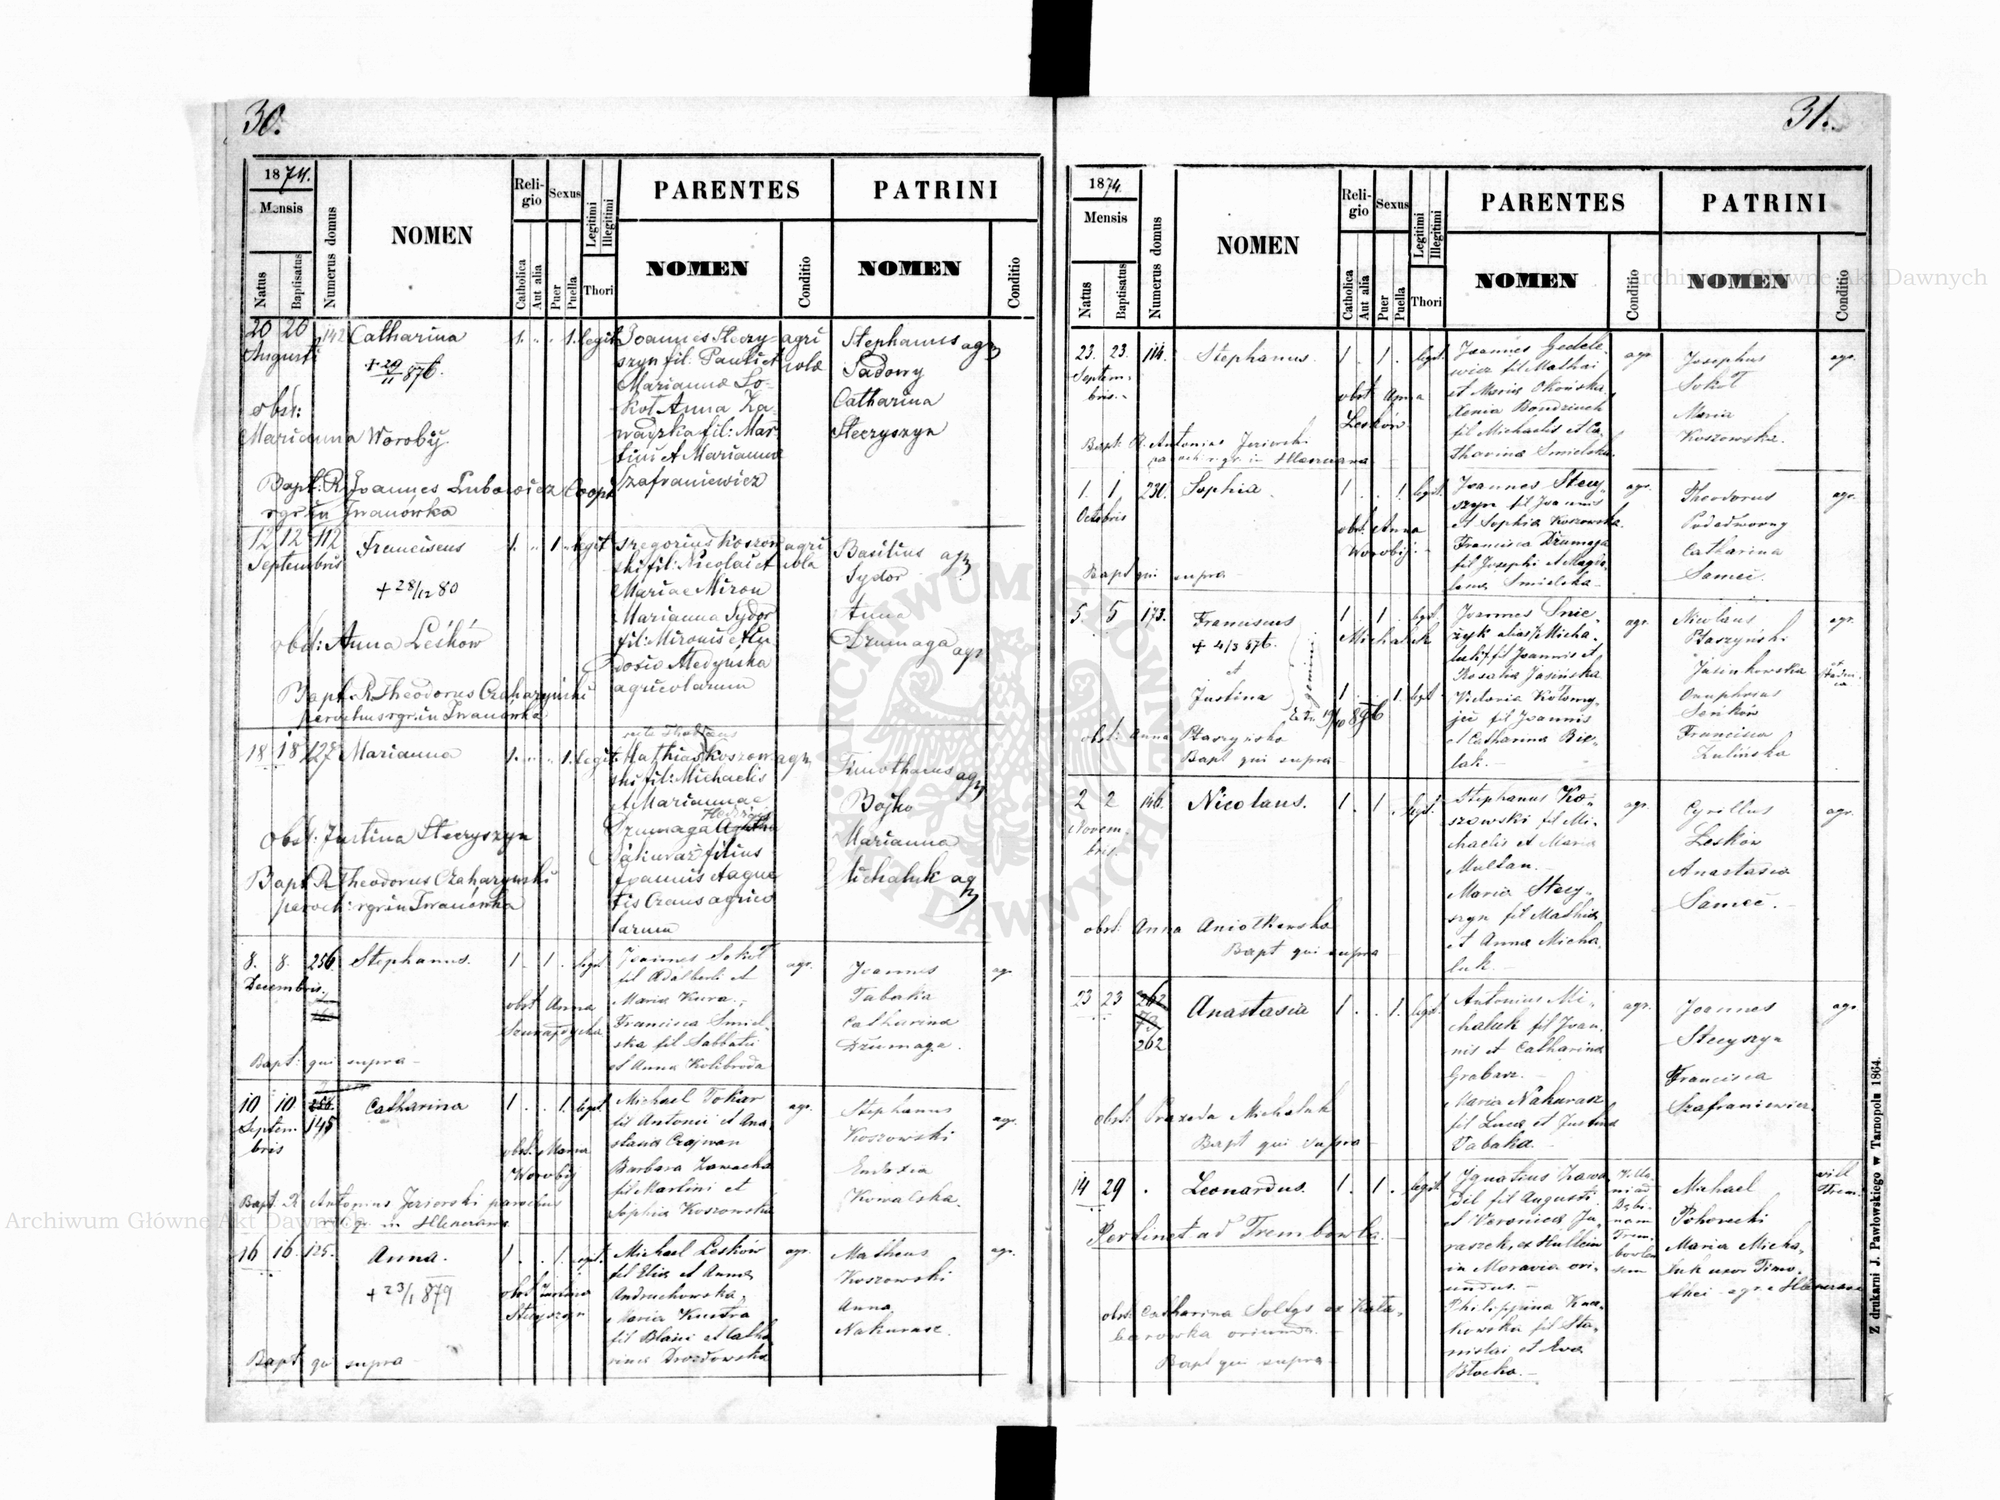 30.
1874.
Mensis
Natus
Baptisatus
Numerus domus
NOMEN
Religio
Catholica
Aut alia
Sexus
Puer
Puella
Legitimi
Illegitimi
Thori
PARENTES
NOMEN
Conditio
PATRINI
NOMEN
Conditio
20 20 142 Catharina 1. 1. legit
Augusti
+ 29/11 876.
obst:
Marianna Worobij
Bapt: R. Joannes Lubowicz Coop:
r gr in Iwanówka
Joannes Steczy-
szyn fil. Pauli et
Marianna So-
kot Anna Za-
wadzka fil: Mar-
tini et Marianna
Szafraniewicz
agri
colæ
Stephanus agr
Sadowy
Catharina
Steczyszyn
12 12 112 Franciscus 1. 1 legit
Septembris
+ 28/12 80
obst: Anna Leśków
Bapt. R. Theodorus Czaharzyński
parochus r gr in Iwanówka
Gregorius Koszow
ski fil: Nicolai et
Mariae Miron
Marianna Sydor
fil: Mironis et Eu
dosia Medyńska
agricolarum
agri
cola
Basilius agr
Sydor
Anna
Dzumaga agr
18 18 127 Marianna 1. 1. legit
Obst: Justina Steczyszyn
Bapt R Theodorus Czaharzynski
paroch: r gr in Iwanówka
Mathias Koszow
ski fil: Michaelis
et Mariannae
Dzumaga
filius
Joannis et Agne
tis Czaus agrico
larum
agr
Timotheus agr
Bojko
Marianna
Michaluk agr
8. 8. 256 Stephanus. 1. 1. legit
Decembris.
obst Anna
Bapt: qui supra
Joannes Sokot
fil Adalberti et
Maria Kura.
Francisca Smiel-
ska fil Sabbatii
et Anna Kolibroda
agr.
Joannes
Taborka
Catharina
Dzumaga.
agr
10 10 256 Catharina 1. 1. legit.
Septem 145
bris
obst. Maria
Worobij
Bapt. R. Antonius Jeziorski parochus
r. gr. in Hleszczawa
Michael Tokar
fil Antonii et Ana
stasia Czajwan
Barbara Zawacka
fil Martini et
Sophia Koszowska
agr.
Stephanus
Koszowski
Eudoxia
Kowalska.
agr.
16 16 125. Anna. 1. 1. legit.
+ 23/1 879
obst Justina
Steczyszyn
Bapt qui supra
Michael Leśków
fil Elia et Anna
Andruchowska,
Maria Kustra
fil Blasii et Catha
rina Drozdowska
agr.
Matheus
Koszowski
Anna
Nakurasz.
agr.
31.
1874.
Mensis
Natus
Baptisatus
Numerus domus
NOMEN
Religio
Catholica
Aut alia
Sexus
Puer
Puella
Legitimi
Illegitimi
Thori
PARENTES
NOMEN
Conditio
PATRINI
NOMEN
Conditio
23. 23. 114. Stephanus. 1. 1. legit.
Septem-
bris.
obst Anna
Leśków
Bapt: R. Antonius Jeziorski
parochus r. gr. in Hleszczawa
Joannes Gedele
wicz fil Mathai
et Maria Okońska
Xenia Bondziuch
fil Michaelis et Ca-
tharina Smielska
agr.
Josephus
Sokot
Maria
Koszowska.
agr.
1. 1 230. Sophia. 1. 1. legit.
Octobris
obst. Anna
Worobij.
Bapt qui supra
Joannes Stecy-
szyn fil Joannis
et Sophia Koszowska
Francisca Dzumaga
fil Josephi et Magda
lena Smielska
agr.
Theodorus
Podedworny
Catharina
Sameć.
agr.
5. 5 173. Franciscus 1 1 legit
+ 4/3 876.
et
Justina 1 1 legit
gemini
19/10 896
Michaluk
obst: Anna Ptaszyńska
Bapt qui supra
Joannes Śnie-
żyk alias Micha-
luk fil Joannis et
Rosalia Jasińska
Victoria Kołomy-
jec fil Joannis
et Catharina Bie-
lak.
agr.
Nicolaus
Ptaszyński
Jasinkowska
Onuphrius
Seńków
Francisca
Zulińska
agr.
2 2 146. Nicolaus. 1. 1 legit.
Novem-
bris.
obst: Anna Aniołkowska
Bapt qui supra
Stephanus Ko-
szowski fil Mi-
chaelis et Maria
Multan.
Maria Stecy-
szyn fil Mathia
et Anna Micha-
luk.
agr.
Cyrillus
Leśków
Anastasia
Sameć.
agr.
23 23 262 Anastasia 1. 1. legit.
262
obst: Praxeda Michaluk
Bapt qui supra
Antonius Mi-
chaluk fil Joan-
nis et Catharina
Grabarz.
Maria Nakurasz
fil Luca et Justina
Vabaka.
agr.
Joannes
Stecyszyn
Francisca
Szafraniewicz
agr.
14 29 . Leonardus. 1. 1. legit.
Pertinet ad Trembowla.
obst: Catharina Soltys ex Kała-
harowka oriunda.
Bapt qui supra
Ignatius Zawa
dil fil Augusti
et Veronica Ju-
raszek, ex Hultein
in Moravia ori-
undus.
Philippina Kra-
kowska fil Sta-
nislai et Eva
Błocka.
Michael
Pohorecki
Maria Micha-
luk uxor Timo-
thei agr. e Hleszczawa
Z drukarni J. Pawłowskiego w Tarnopolu 1864.
Archiwum Główne Akt Dawnych
Archiwum Główne Akt Dawnych
ARCHIWUM GŁÓWNE AKT DAWNYCH